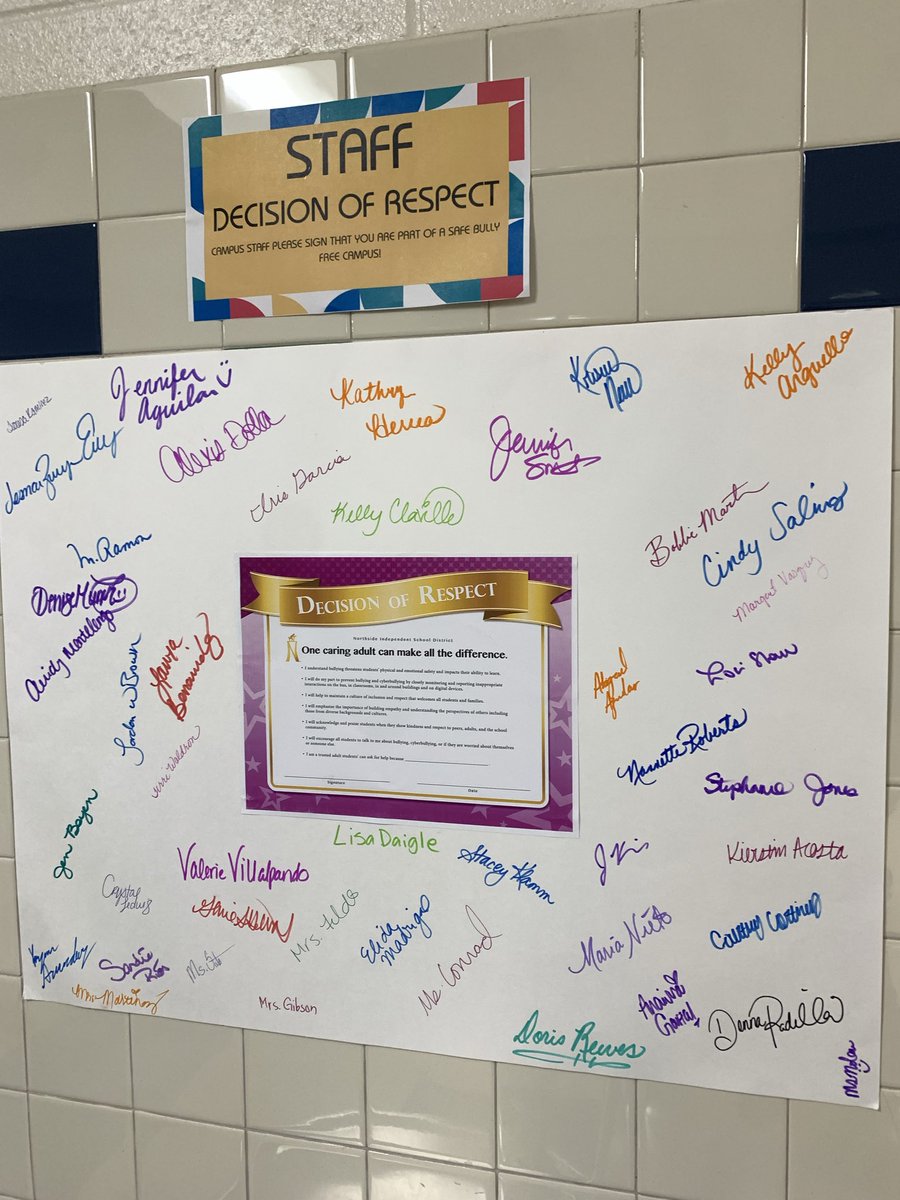 STAFF
DECISION OF RESPECT
CAMPUS STAFF PLEASE SIGN THAT YOU ARE PART OF A SAFE BULLY
FREE CAMPUS!
Jennifer
Aguilar
Kathryn
Kelly
Arguello
Alexis Dolla
Jennifer
Iris Garcia
Kelly Claville
Bobbie Martin
Cindy Salinas
M. Ramon
Margaret Vasquez
Denise
Cindy Montelongo
DECISION OF RESPECT
Northside Independent School District
One caring adult can make all the difference.
• I understand bullying threatens students' physical and emotional safety and impacts their ability to learn.
• I will do my part to prevent bullying and cyberbullying by closely monitoring and reporting inappropriate
interactions on the bus, in classrooms, in and around buildings and on digital devices.
• I will help to maintain a culture of inclusion and respect that welcomes all students and families.
• I will emphasize the importance of building empathy and understanding the perspectives of others including
those from diverse backgrounds and cultures.
• I will acknowledge and praise students when they show kindness and respect to peers, adults, and the school
community.
• I will encourage all students to talk to me about bullying, cyberbullying, or if they are worried about themselves
or someone else.
• I am a trusted adult students' can ask for help because
Signature
Date
Laura
Jordan W Brown
Abigail
Aguilar
Lori Shaw
Terri Waldron
Nannette Roberts
Stephanie Jones
Jen Bayer
Lisa Daigle
Kierstin Acosta
Valerie Villalpando
Stacey Hamm
Crystal
Mrs. Fields
Elida
Madrigal
Ms. Conrad
Maria Nieto
Courtney
Sandie
Mrs. Martinez
Mrs. Gibson
Doris Reeves
Donna Padilla
Ms Nolan